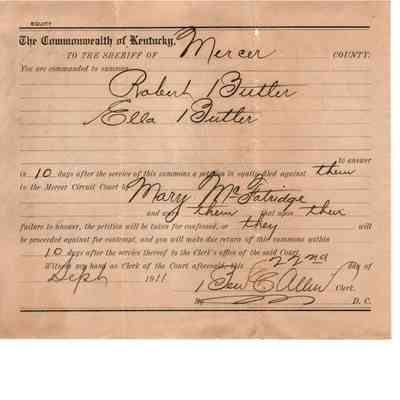 EQUITY
The Commonwealth of Kentucky,
TO THE SHERIFF OF Mercer COUNTY:
You are commanded to summon
Robert Butler
Ella Butler
to answer
in 10 days after the service of this summons a petition in equity filed against them
in the Mercer Circuit Court by Mary McFatridge
and warn them that upon their
failure to answer, the petition will be taken for confessed, or they will
be proceeded against for contempt, and you will make due return of this summons within
10 days after the service thereof to the Clerk's office of the said Court.
Witness my hand as Clerk of the Court aforesaid, this 22nd day of
Sept 1911. C Allin Clerk.
By D. C.